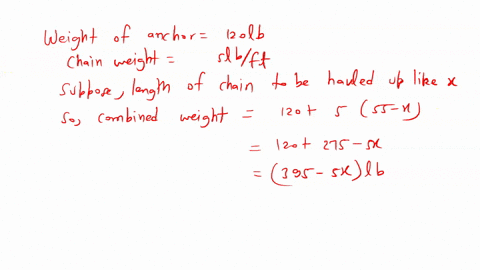 Weight of anchor = 120lb
Chain weight = 5lb/ft
Suppose, length of chain to be hauled up like x
So, combined weight = 120 + 5 (55-x)
= 120 + 275 - 5x
= (395 - 5x) lb